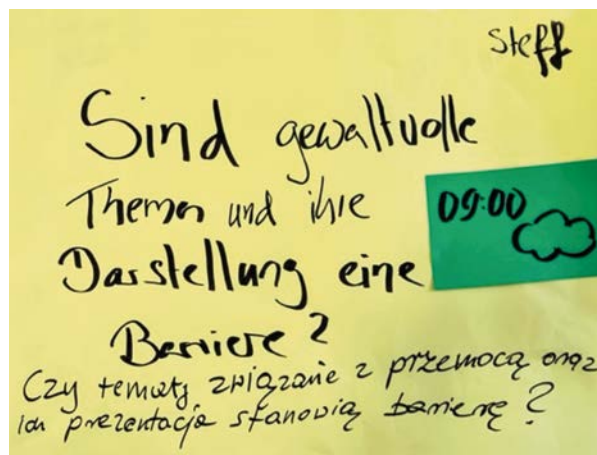 Steff
Sind gewaltvolle
Themen und ihre
09:00
Darstellung eine
Barriere?
Czy tematy związane z przemocą oraz
ich prezentacja stanowią barierę?